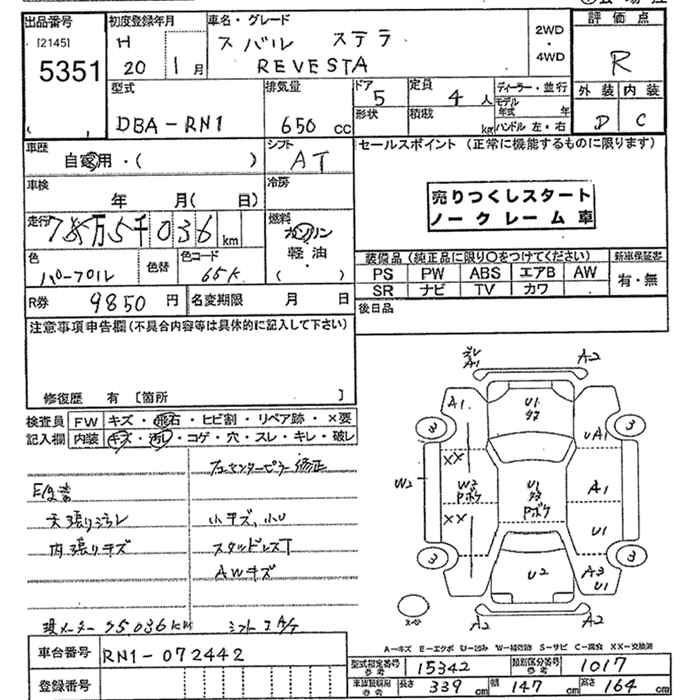 出品番号
[2145]
5351
(　　　)
初度登録年月
H
20　1月
車名・グレード
スバル　ステラ
REVESTA
2WD
・
4WD
評価点
R
外装　内装
D　C
型式
DBA-RN1
排気量
650 cc
ドア
5
定員
4人
ディーラー・並行
モデル
年式　年
形状
積載
kg
ハンドル 左・右
車歴
自家用・(　　　)
シフト
AT
車検
年　月(　日)
冷房
走行
万5千036 km
燃料
ガソリン
・
軽油
(　　)
色
パープル
色替
色コード
65K
R券　9850円
名変期限　月　日
セールスポイント (正常に機能するものに限ります)
売りつくしスタート
ノークレーム車
装備品 (純正品に限り○をつけてください)
新車保証書
PS　PW　ABS　エアB　AW
SR　ナビ　TV　カワ
有・無
後日品
注意事項申告欄(不具合内容等は具体的に記入して下さい)
修復歴　有 [箇所　　　]
検査員
記入欄
FW　キズ・飛石・ヒビ割・リペア跡・×要
内装　キズ・汚レ・コゲ・穴・スレ・キレ・破レ
右センターピラー修正
天張り汚レ
内張りキズ
小キズ、小U
スタッドレスT
AWキズ
現メーター 75036km
A1
A2
A1
U1
3
3
UA1
XX
W2
W3
Pボケ
U1
Pボケ
A1
XX
U1
3
3
U2
A3
U1
A2
A2
A-キズ　E-エクボ　U-凹み　W-補修跡　S-サビ　C-腐食　XX-交換済
車台番号
RN1-072442
登録番号
型式指定番号
参考
15342
類別区分番号
参考
1017
車検証記載用
参考
長さ 339 cm
幅 147 cm
高さ 164 cm